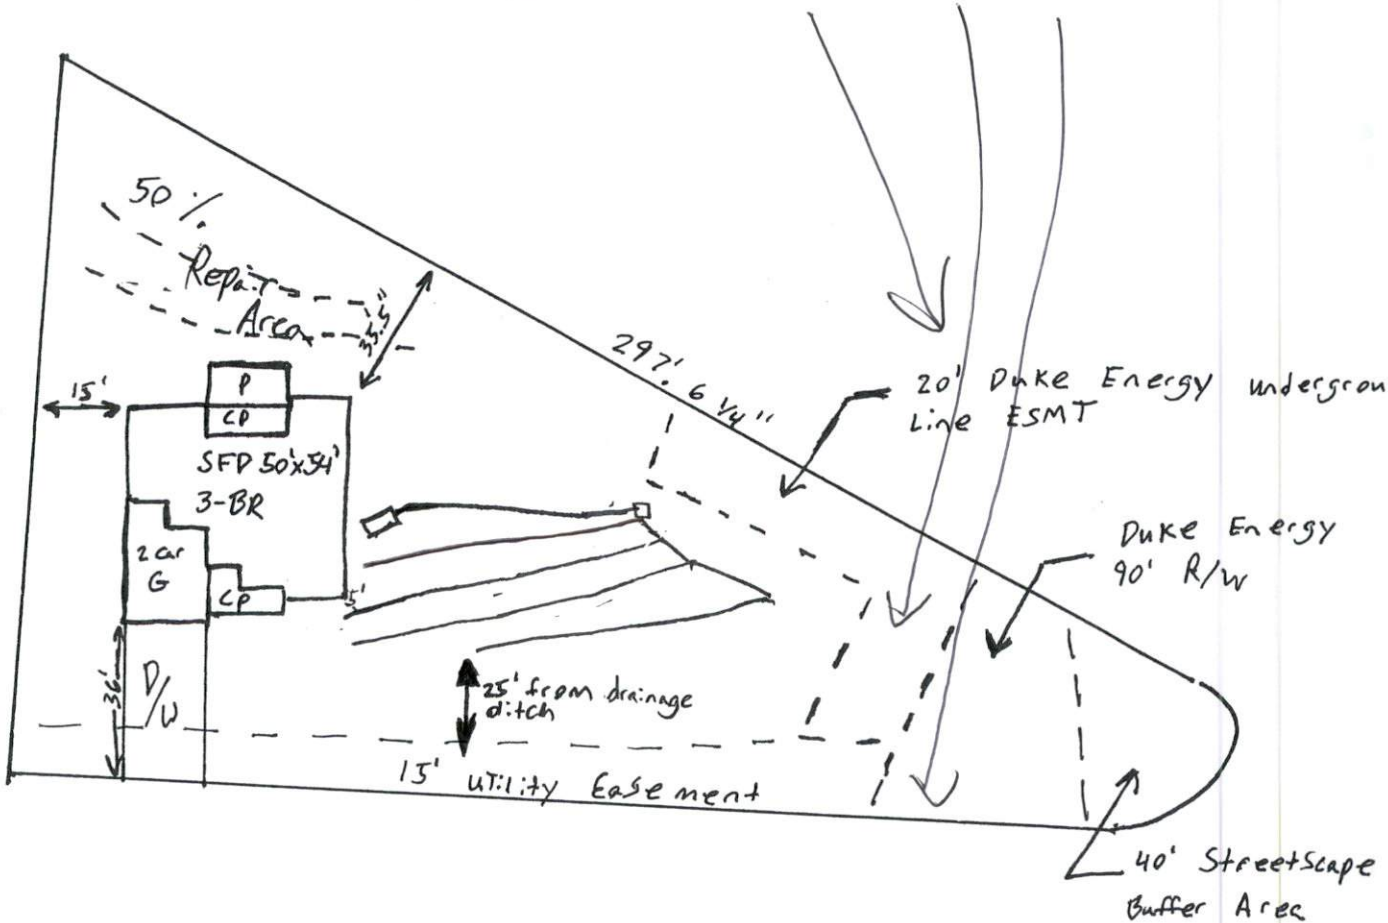 50 %
Repair
Area
35.5"
297' 6 1/4"
15'
P
CP
SFD 50'x54'
3-BR
2 car
G
CP
5'
20' Duke Energy undergroun
Line ESMT
Duke Energy
90' R/W
36'
D/W
25' from drainage
ditch
15' Utility Easement
40' Streetscape
Buffer Area